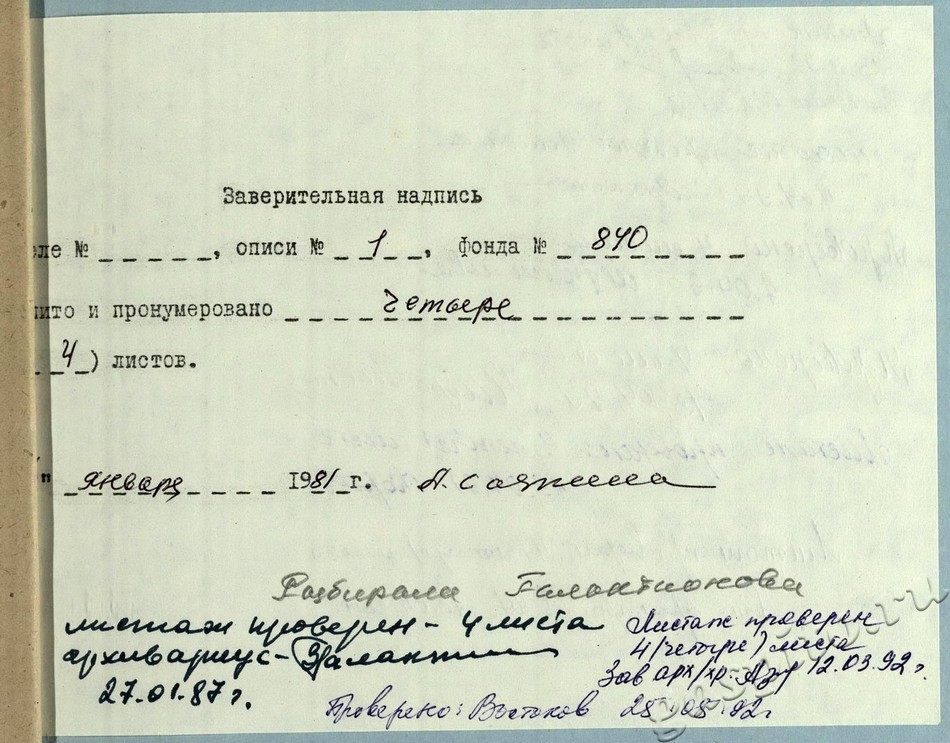 Заверительная надпись
еле № _ _ _ _ _, описи № _ _ 1 _ _, фонда № _ _ 840 _ _ _ _
ито и пронумеровано _ _ _ _ Четыре _ _ _ _ _ _ _ _ _
_ 4 _) листов.
" _ января _ _ _ _ 1981 г.
Разбирала Галактионова
листаж проверен - 4 листа
архивариус-
27.01.87 г.
Листаж проверен
4 (четыре) листа
Зав арх/хр. 12.03.92 г.
Проверено: Востоков 28.08.92г